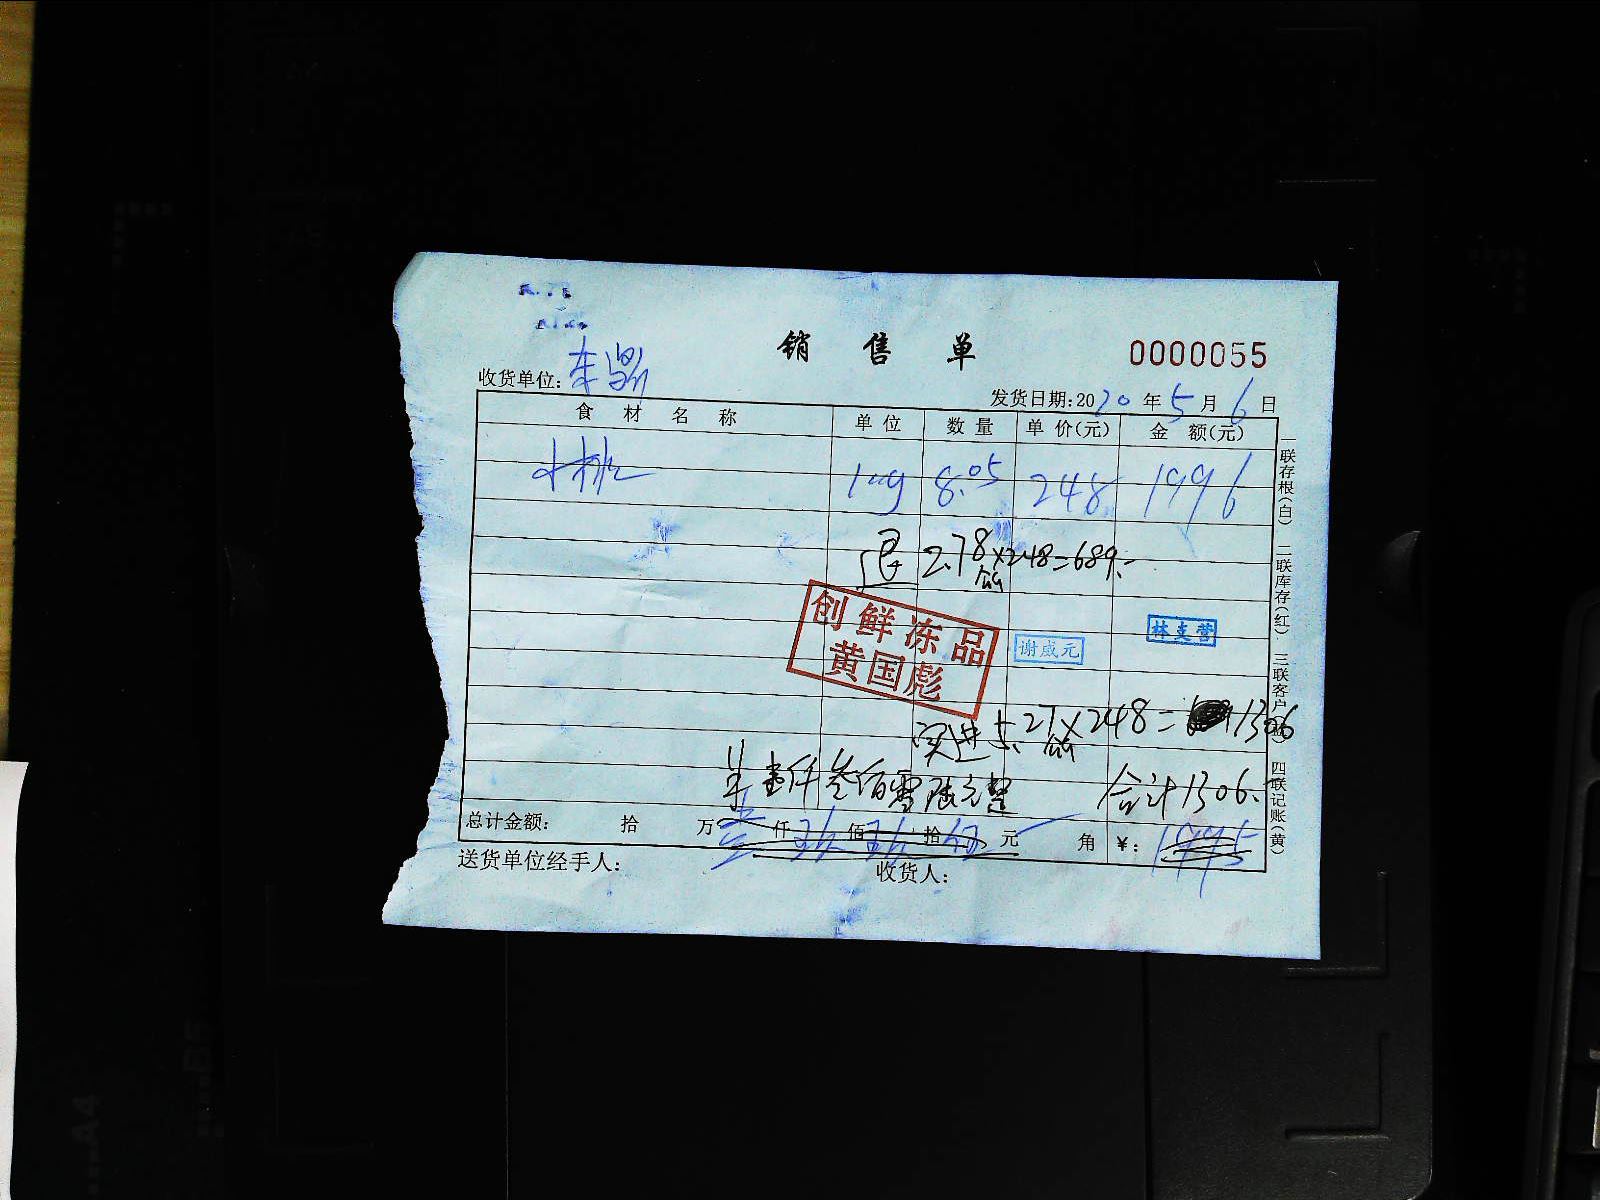 销 售 单
0000055
收货单位：东鼎
发货日期:2020 年 5 月 6 日
食 材 名 称 单 位 数 量 单 价(元) 金 额(元)
kg 8.05 248 1996
退 2.78×248=689.-
公斤
创鲜冻品
黄国彪
谢威元
林支营
实进 5.27×248= 1306
公斤
壹仟叁佰零陆元整 合计1306.-
总计金额: 拾 万 壹 仟 玖 佰 玖 拾 伍 元 角 ¥: 1995
送货单位经手人: 收货人:
一联存根(白) 二联库存(红) 三联客户 四联记账(黄)